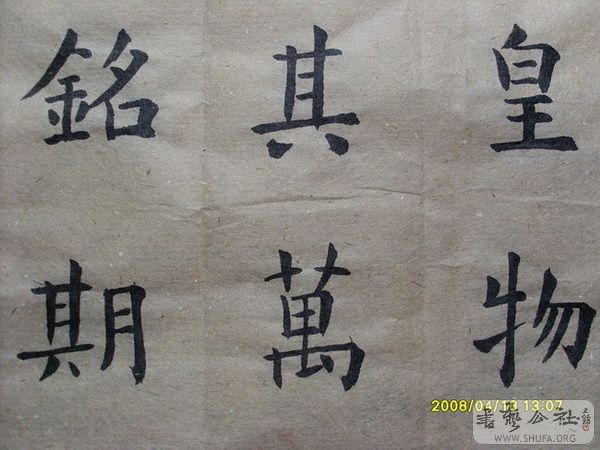 皇物
其萬
銘期
2008/04/13 13:07
書藝公社
WWW.SHUFA.ORG